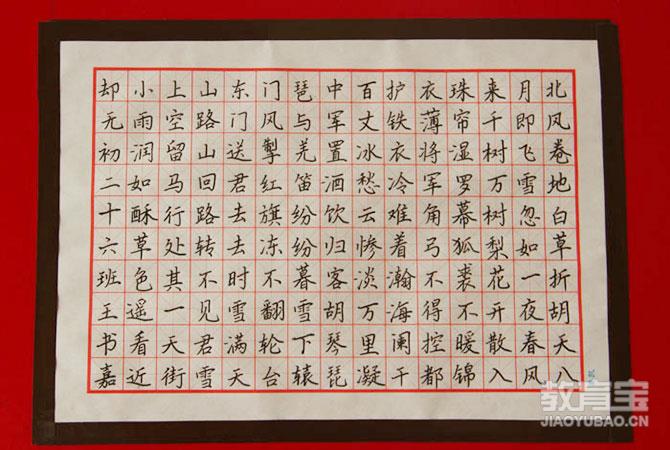 北风卷地白草折胡天八
月即飞雪忽如一夜春风
来千树万树梨花开散入
珠帘湿罗幕狐裘不暖锦
衣薄将军角弓不得控都
护铁衣冷难着瀚海阑干
百丈冰愁云惨淡万里凝
中军置酒饮归客胡琴琵
琶与羌笛纷纷暮雪下辕
门风掣红旗冻不翻轮台
东门送君去去时雪满天
山路山回路转不见君雪
上空留马行处其一天街
小雨润如酥草色遥看近
却无初二十六班王书嘉
教育宝
JIAOYUBAO.CN